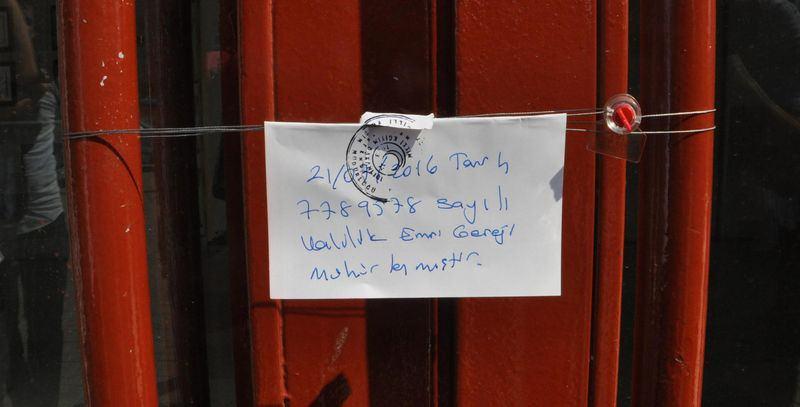 21/07/2016 Tarih
7789578 sayılı
Valilik Emri Gereği
Mühürlenmiştir.